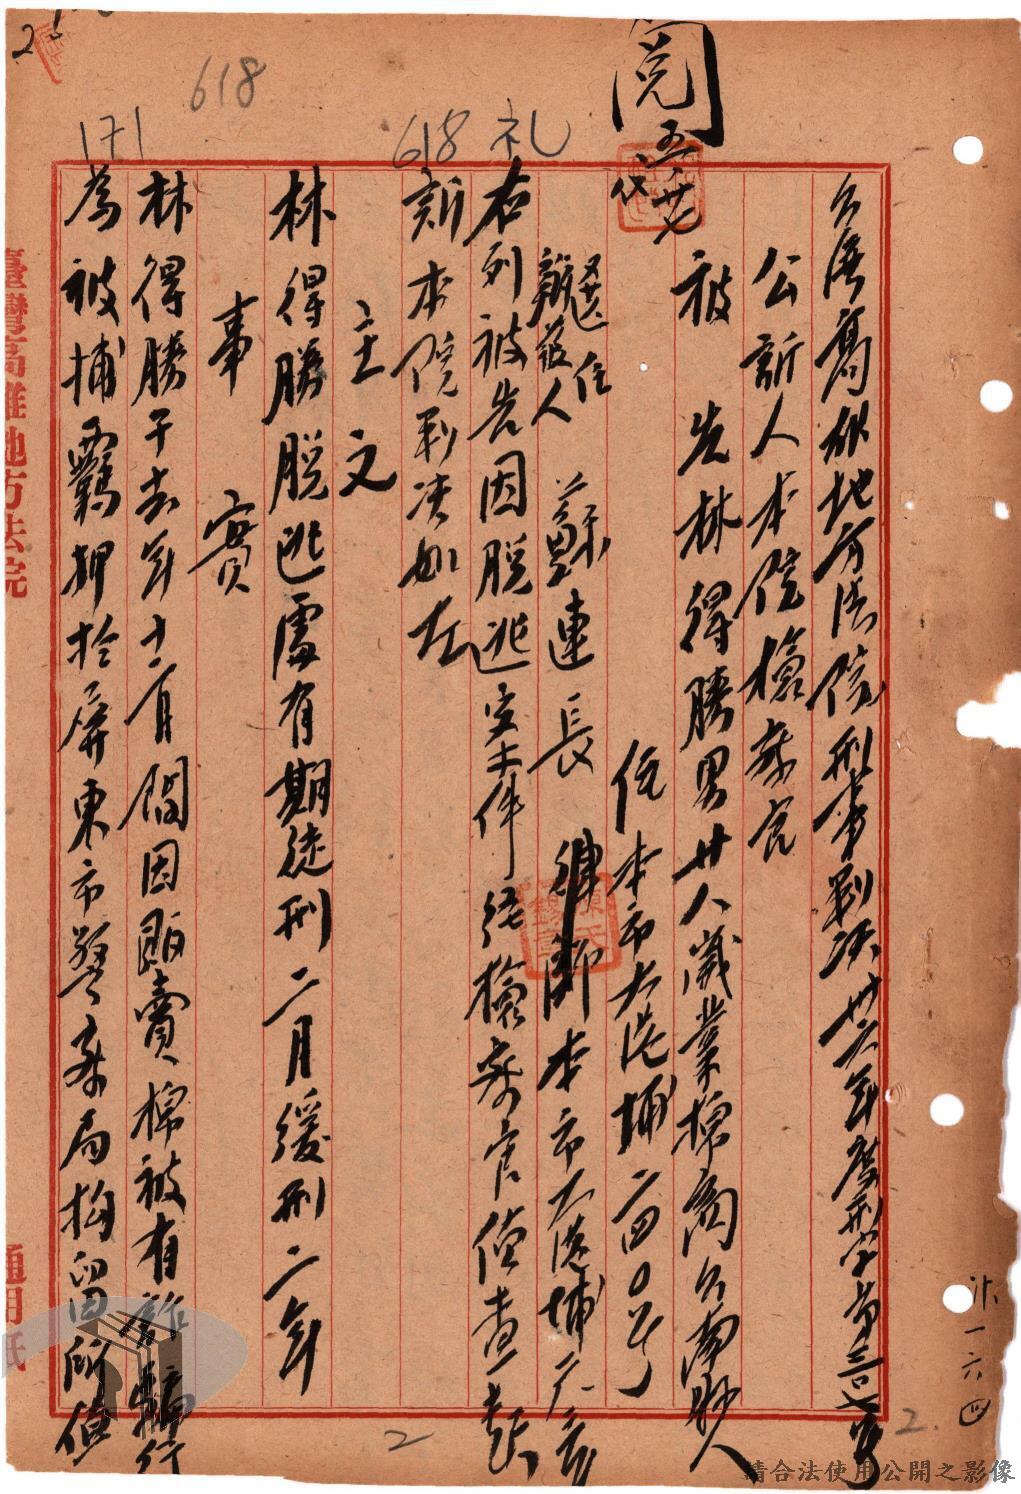 閲
五廿七
618
171
618 礼
台湾高雄地方法院刑事判決卅六年度刑字第三七号
公訴人本院檢察官
被告林得勝男廿八歲業棉商台南縣人
住本市大港埔二四〇号
選任
辯護人 蘇連長 律師 本市大港埔
右列被告因脱逃案件經檢察官偵查起
訴本院判決如左
主文
林得勝脱逃處有期徒刑二月緩刑二年
事實
林得勝于去年十二月間因販賣棉被有詐騙行
為被捕羈押於屏東市警察局拘留所偵
臺灣高雄地方法院
通用紙
一六四
2
2.
請合法使用公開之影像